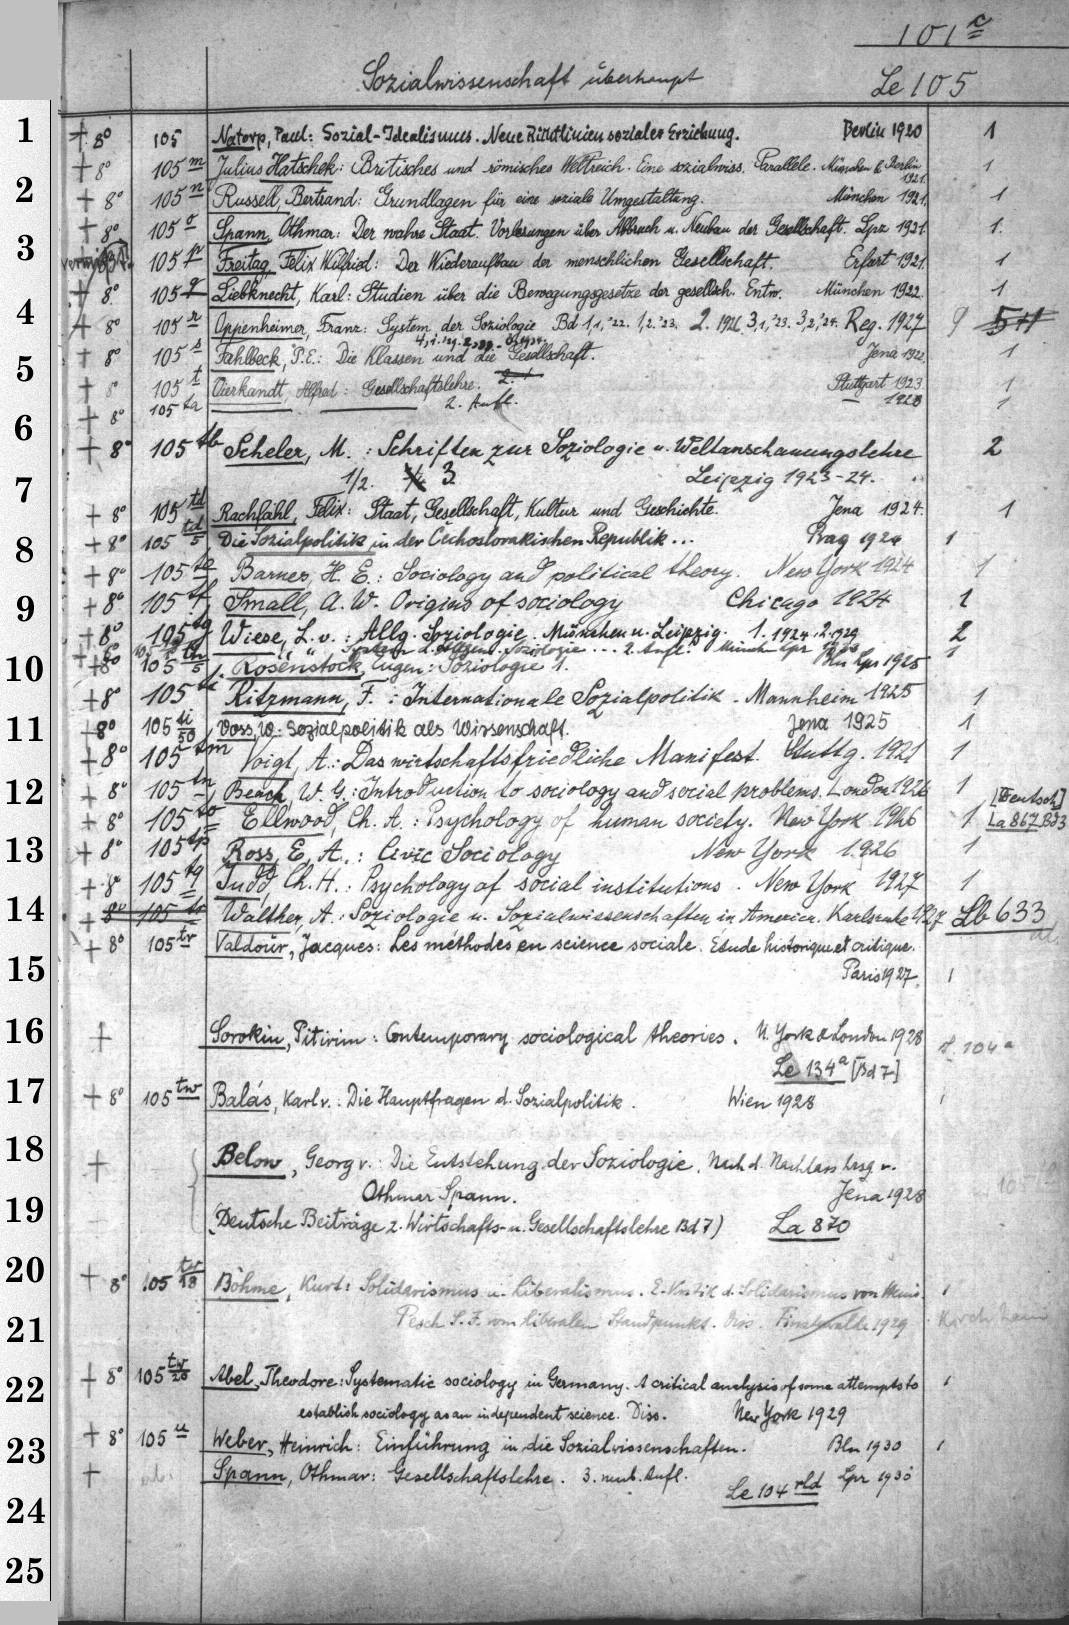 101 c
Sozialwissenschaft überhaupt Le 105
1 + 8° 105 Natorp, Paul: Sozial-Idealismus. Neue Richtlinien sozialer Erziehung. Berlin 1920 1
+ 8° 105 m Julius Hatschek: Britisches und römisches Weltreich. Eine sozialwiss. Parallele. München & Berlin 1921. 1
2 + 8° 105 n Russell, Bertrand: Grundlagen für eine soziale Umgestaltung. München 1921. 1
+ 8° 105 o Spann, Othmar: Der wahre Staat. Vorlesungen über Abbruch u. Neubau der Gesellschaft. Lpz 1921. 1.
3 105 p Freitag, Felix Wilfried: Der Wiederaufbau der menschlichen Gesellschaft. Erfurt 1921. 1
+ 8° 105 q Liebknecht, Karl: Studien über die Bewegungsgesetze der gesellsch. Entw. München 1922. 1
4 + 8° 105 r Oppenheimer, Franz: System der Soziologie Bd 1,1,'22. 1,2.'23. 2. 1926. 3,1,'23. 3,2,'24. Reg. 1927 9
+ 8° 105 s Fahlbeck, P.E.: Die Klassen und die Gesellschaft. Jena 1922 1
5 + 8° 105 t Vierkandt, Alfred: Gesellschaftslehre. Stuttgart 1923 1
+ 8° 105 ta 2. Aufl. 1928 1
6 + 8° 105 tb Scheler, M.: Schriften zur Soziologie u. Weltanschauungslehre 2
7 1/2. 3 Leipzig 1923-24.
+ 8° 105 td Rachfahl, Felix: Staat, Gesellschaft, Kultur und Geschichte. Jena 1924. 1
8 + 8° 105 td/5 Die Sozialpolitik in der Čechoslovakischen Republik... Prag 1924 1
+ 8° 105 te Barnes, H. E.: Sociology and political theory. New York 1924 1
9 + 8° 105 tf Small, A. W. Origins of sociology Chicago 1924 1
+ 8° 105 tg Wiese, L. v.: Allg. Soziologie. München u. Leipzig. 1. 1924. 2. 1929 2
System d. Allgem. Soziologie ... 2. Aufl. Münch Lpz 1
10 + 8° 105 th/5 Rosenstock, Eugen: Soziologie 1. Bln Lpz 1925
+ 8° 105 ti Ritzmann, F.: Internationale Sozialpolitik. Mannheim 1925 1
11 + 8° 105 ti/50 Voss, W. Sozialpolitik als Wissenschaft. Jena 1925 1
+ 8° 105 tm Voigt, A.: Das wirtschaftsfriedliche Manifest. Stuttg. 1921 1
12 + 8° 105 tn Beach, W. G.: Introduction to sociology and social problems. London 1926 1 [Deutsch]
+ 8° 105 to Ellwood, Ch. A.: Psychology of human society. New York 1926 1 La 867 Bd 3
13 + 8° 105 tp Ross, E. A.: Civic Sociology New York 1926 1
+ 8° 105 tq Judd, Ch. H.: Psychology of social institutions. New York 1927 1
14 + 8° 105 tr Walther, A.: Soziologie u. Sozialwissenschaften in America. Karlsruhe 1927 Lb 633
+ 8° 105 tr Valdour, Jacques: Les méthodes en science sociale. Étude historique et critique.
15 Paris 1927. 1
16 + Sorokin, Pitirim: Contemporary sociological theories. N. York & London 1928 s. 104 a
Le 134 a [Bd 7]
17 + 8° 105 tw Balás, Karl v.: Die Hauptfragen d. Sozialpolitik. Wien 1928 1
18 + Below, Georg v.: Die Entstehung der Soziologie. Nach d. Nachlass hrsg. v.
Othmar Spann. Jena 1928
19 (Deutsche Beiträge z. Wirtschafts- u. Gesellschaftslehre Bd 7) La 870
20 + 8° 105 tw/18 Böhme, Kurt: Solidarismus u. Liberalismus. E. Kritik d. Solidarismus von Heinr. 1
21 Pesch S. J. vom liberalen Standpunkt. Diss. Finsterwalde 1929 Kirchhain
22 + 8° 105 tw/20 Abel, Theodore: Systematic sociology in Germany. A critical analysis of some attempts to 1
establish sociology as an independent science. Diss. New York 1929
23 + 8° 105 u Weber, Heinrich: Einführung in die Sozialwissenschaften. Bln 1930 1
+ Spann, Othmar: Gesellschaftslehre. 3. neub. Aufl. Lpz 1930
24 Le 104 rld
25